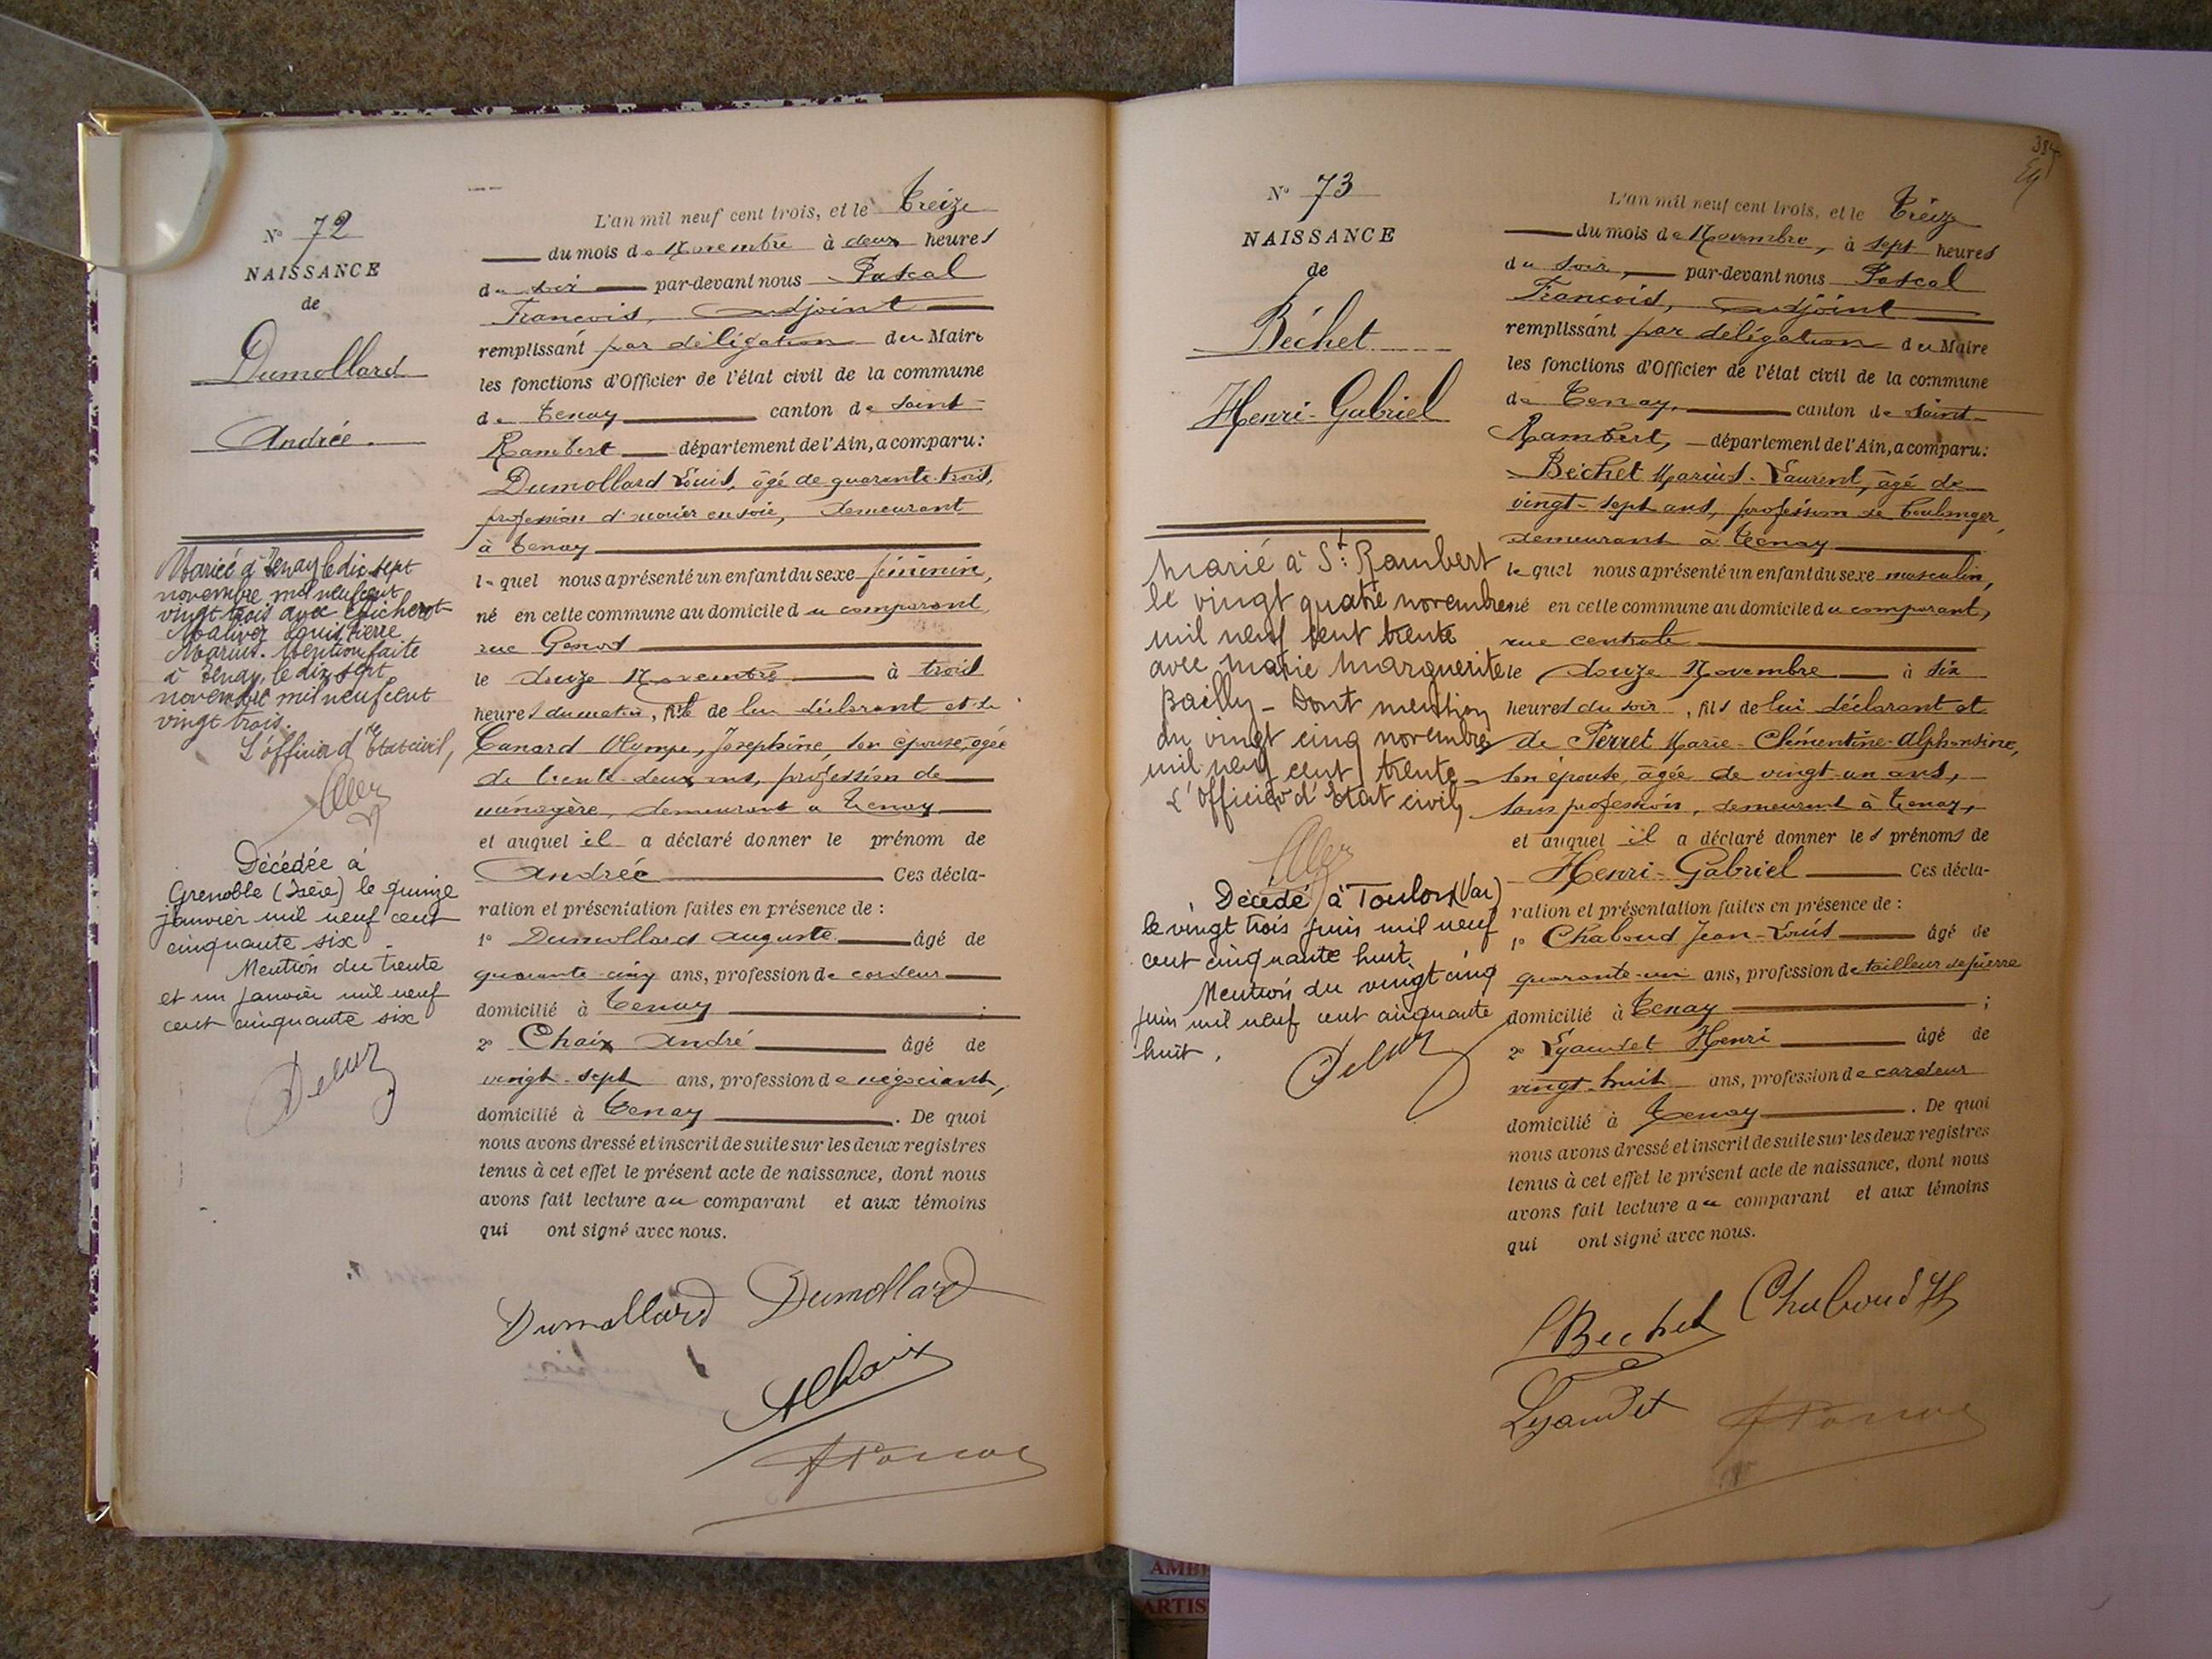 N° 72
NAISSANCE
de
Dumollard
Andrée.
Mariée à Tenay le dix sept
novembre mil neuf cent
vingt trois avec
Louis Pierre
Marius. Mention faite
à Tenay, le dix sept
novembre mil neuf cent
vingt trois.
L'officier d'Etat civil,
Décédée à
Grenoble (Isère) le quinze
janvier mil neuf cent
cinquante six.
Mention du trente
et un janvier mil neuf
cent cinquante six
L'an mil neuf cent trois, et le Treize
du mois de Novembre à deux heures
du soir par-devant nous Pascal
François, adjoint
remplissant par délégation du Maire
les fonctions d'Officier de l'état civil de la commune
de Tenay canton de Saint-
Rambert département de l'Ain, a comparu:
Dumollard Louis, âgé de quarante-trois,
profession d'ouvrier en soie, demeurant
à Tenay
lequel nous a présenté un enfant du sexe féminin,
né en cette commune au domicile du comparant,
rue
le douze Novembre à trois
heures du matin, fille de lui déclarant et de
Canard Olympe, Joséphine, son épouse, agée
de trente-deux ans, profession de
ménagère, demeurant à Tenay
et auquel il a déclaré donner le prénom de
Andrée Ces décla-
ration et présentation faites en présence de :
1° Dumollard Auguste âgé de
quarante-cinq ans, profession de cardeur
domicilié à Tenay ;
2° Chaix André âgé de
vingt-sept ans, profession de négociant,
domicilié à Tenay . De quoi
nous avons dressé et inscrit de suite sur les deux registres
tenus à cet effet le présent acte de naissance, dont nous
avons fait lecture au comparant et aux témoins
qui ont signé avec nous.
Dumollard Dumollard
AChaix
N° 73
NAISSANCE
de
Béchet
Henri-Gabriel
Marié à St Rambert
le vingt quatre novembre
mil neuf cent trente
avec Marie Marguerite
Bailly - Dont mention
du vingt cinq novembre
mil neuf cent trente
L'Officier d'Etat civil,
Décédé à Toulon (Var)
le vingt trois juin mil neuf
cent cinquante huit.
Mention du vingt cinq
juin mil neuf cent cinquante
huit.
L'an mil neuf cent trois, et le Treize
du mois de Novembre, à sept heures
du soir, par-devant nous Pascal
François, adjoint
remplissant par délégation du Maire
les fonctions d'Officier de l'état civil de la commune
de Tenay, canton de Saint-
Rambert, département de l'Ain, a comparu:
Béchet Marius-Laurent, âgé de
vingt-sept ans, profession de boulanger,
demeurant à Tenay
lequel nous a présenté un enfant du sexe masculin,
né en cette commune au domicile du comparant,
rue centrale
le douze Novembre à six
heures du soir, fils de lui déclarant et
de Perret Marie-Clémentine-Alphonsine,
son épouse, âgée de vingt-un ans,
sans profession, demeurant à Tenay,
et auquel il a déclaré donner les prénoms de
Henri-Gabriel Ces décla-
ration et présentation faites en présence de :
1° Chaboud Jean-Louis âgé de
quarante-un ans, profession de tailleur de pierre
domicilié à Tenay ;
2° Lyaudet Henri âgé de
vingt-huit ans, profession de cardeur
domicilié à Tenay . De quoi
nous avons dressé et inscrit de suite sur les deux registres
tenus à cet effet le présent acte de naissance, dont nous
avons fait lecture au comparant et aux témoins
qui ont signé avec nous.
Bechet Chaboud
Lyaudet